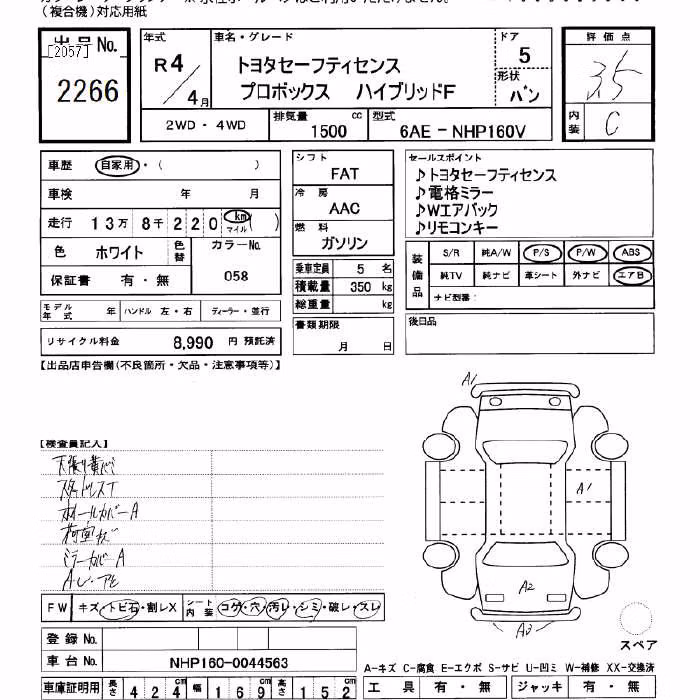 (複合機)対応用紙
出品No.
[2057]
2266
年式 R4/4月
車名・グレード
トヨタセーフティセンス
プロボックス ハイブリッドF
ドア 5
形状 バン
2WD・4WD
排気量 1500 cc
型式 6AE-NHP160V
評価点
3.5
内装 C
車歴 自家用・( )
車検 年 月
走行 13万 8千 220 km マイル ( )
色 ホワイト 色替
カラーNo. 058
保証書 有・無
モデル年式 年 ハンドル 左・右 ディーラー・並行
リサイクル料金 8,990 円 預託済
シフト FAT
冷房 AAC
燃料 ガソリン
乗車定員 5 名
積載量 350 kg
総重量 kg
書類期限
月 日
セールスポイント
♪トヨタセーフティセンス
♪電格ミラー
♪Wエアバック
♪リモコンキー
装備品
S/R 純A/W P/S P/W ABS
純TV 純ナビ 革シート 外ナビ エアB
ナビ型番:
後日品
【出品店申告欄(不良箇所・欠品・注意事項等)】
【検査員記入】
スタッドレスT
ホイールカバーA
ミラーカバーA
A1
A1
A2
A3
FW キズ・トビ石・割レX シート内装 コゲ・穴・汚レ・シミ・破レ・スレ
登録No.
車台No. NHP160-0044563
車庫証明用 長さ 424 cm 幅 169 cm 高さ 152 cm
スペア
A-キズ C-腐食 E-エクボ S-サビ U-凹ミ W-補修 XX-交換済
工具 有・無 ジャッキ 有・無